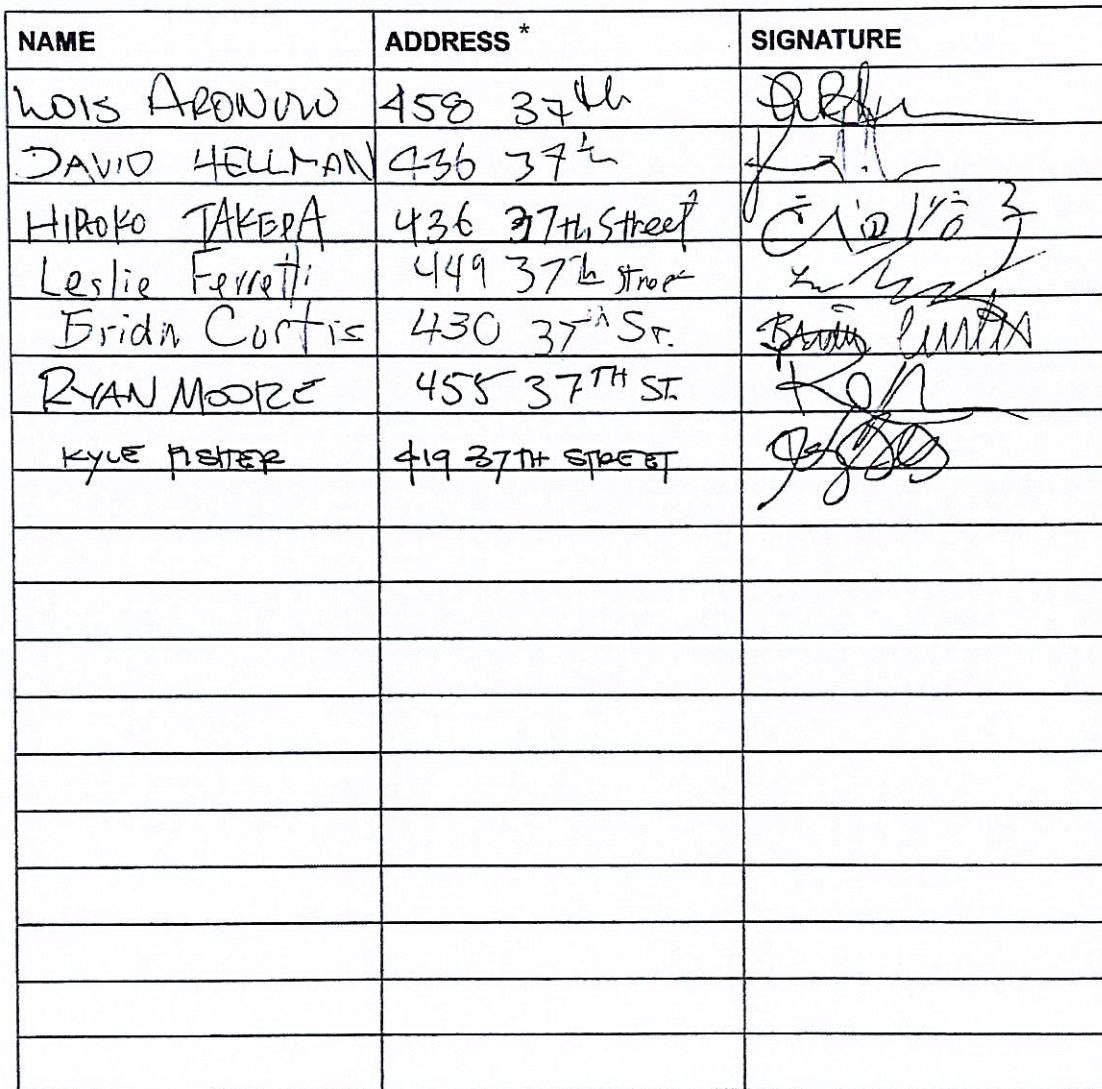 NAME ADDRESS * SIGNATURE
LOIS 458 37th
DAVID HELLMAN 436 37th
HIROKO TAKEDA 436 37th Street
Leslie Ferretti 449 37th Street
Brian Curtis 430 37th St. Curtis
RYAN MOORE 455 37TH ST.
KYLE FISHER 419 37TH STREET